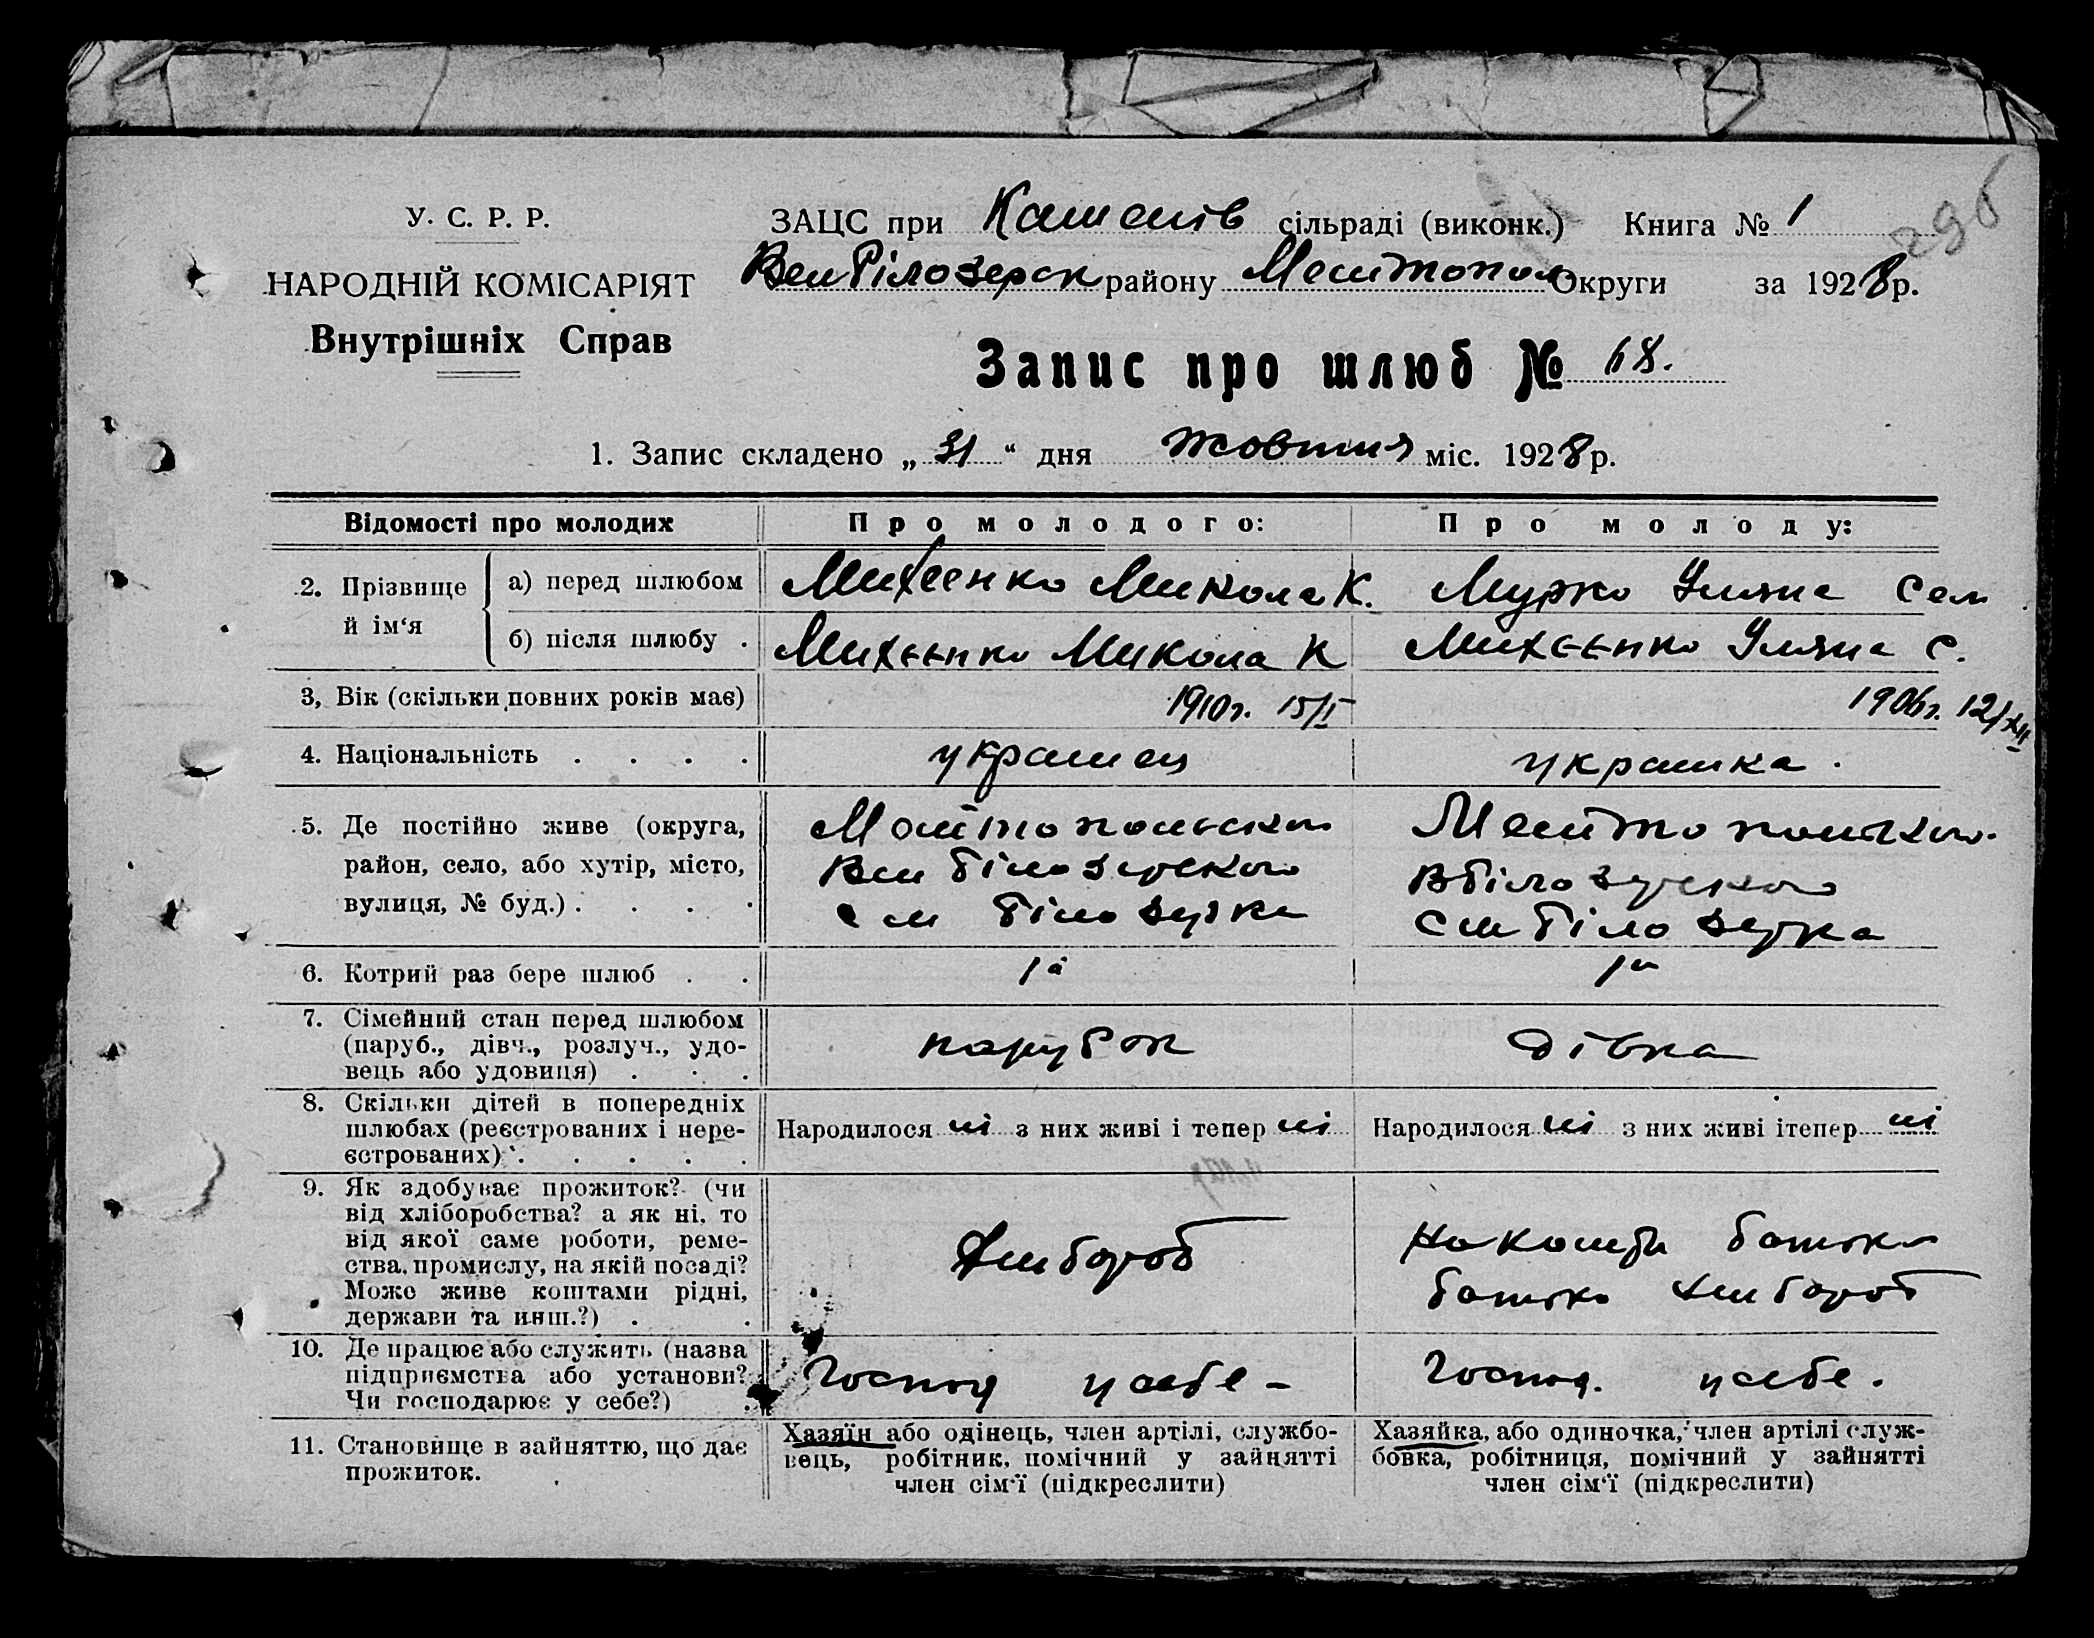 У. С. Р. Р.
НАРОДНІЙ КОМІСАРІЯТ
Внутрішніх Справ
ЗАЦС при сільраді (виконк.) Книга № 1
296
ВелБілозерск району Мелитопол Округи за 1928 р.
Запис про шлюб № 68.
1. Запис складено „ 31 “ дня жовтня міс. 1928 р.
Відомості про молодих Про молодого: Про молоду:
2. Прізвище й ім‘я
а) перед шлюбом Михеенко Микола К. Мурко Уляна Сем
б) після шлюбу . Михєєнко Микола К Михєєнко Уляна С.
3, Вік (скільки повних років має) 1910г. 15/I 1906г. 12/XII
4. Національність . . . . украинец украинка.
5. Де постійно живе (округа, Мелітопольского Мелитопольского
район, село, або хутір, місто, Вел Білозерского ВБілозерского
вулиця, № буд.) . . . . с м Білозерка с м Білозерка
6. Котрий раз бере шлюб . . 1й 1й
7. Сімейний стан перед шлюбом
(паруб., дівч., розлуч., удо-
вець або удовиця) . . . парубок дівка
8. Скільки дітей в попередніх
шлюбах (реєстрованих і нере-
єстрованих) . . . . .
Народилося ні з них живі і тепер ні Народилося ні з них живі ітепер ні
9. Як здобуває прожиток? (чи
від хліборобства? а як ні, то
від якої саме роботи, реме-
ства, промислу, на якій посаді?
Може живе коштами рідні,
держави та инш.?) . .
Хлибороб
На кошти батька
батько хлибороб
10. Де працює або служить (назва
підприємства або установи?
Чи господарює у себе?) .
Господ у себе – Господ. у себе.
11. Становище в зайняттю, що дає
прожиток.
Хазяїн або одінець, член артілі, службо-
вець, робітник, помічний у зайнятті
член сім‘ї (підкреслити)
Хазяйка, або одиночка, член артілі служ-
бовка, робітниця, помічний у зайнятті
член сім‘ї (підкреслити)